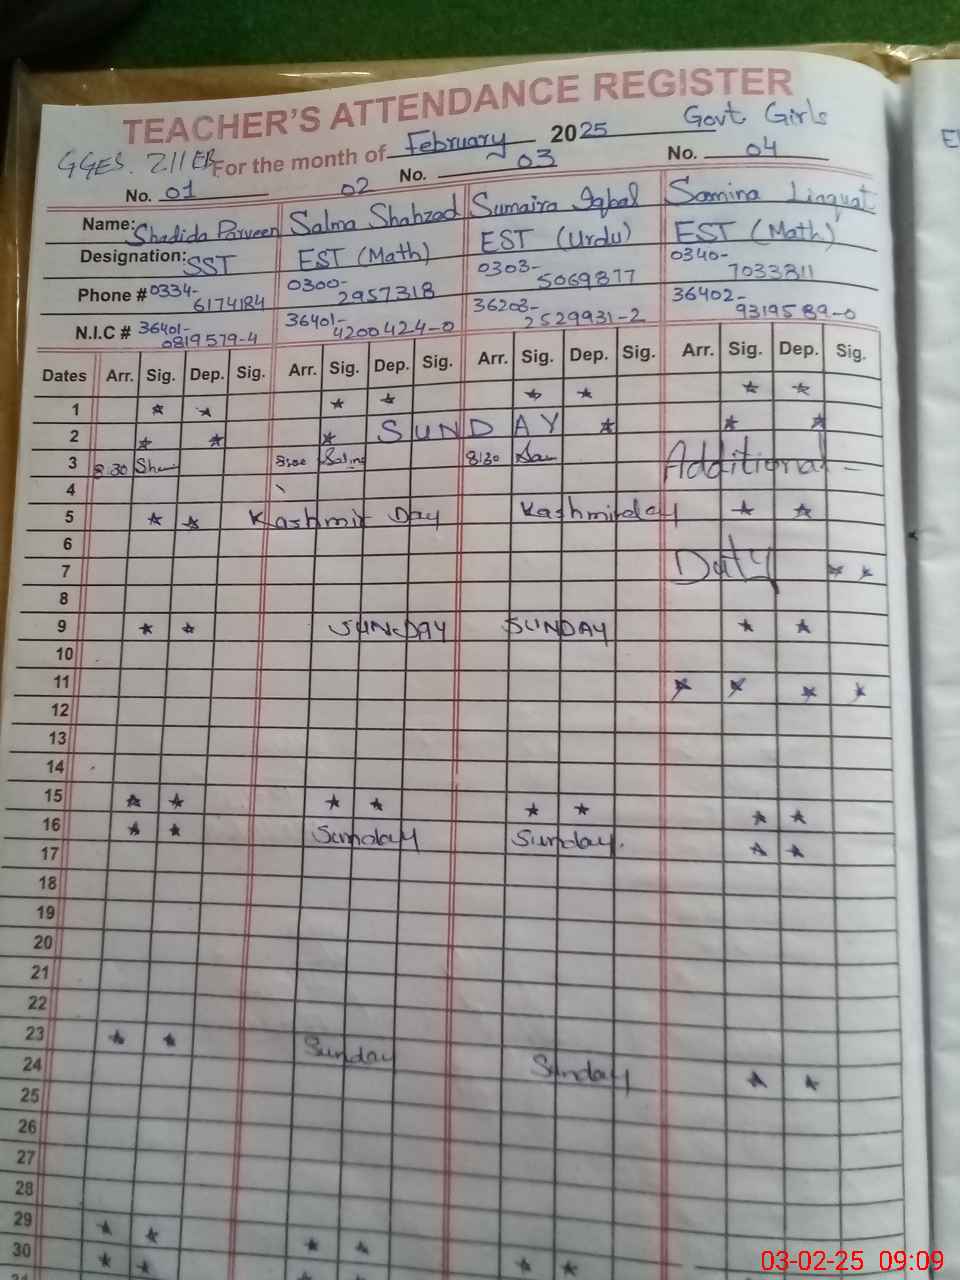 TEACHER'S ATTENDANCE REGISTER
GGES. 211 EB For the month of February 2025 Govt Girls
No. 01 02 No. 03 No. 04
Name: Shadida Parveen Salma Shahzad Sumaira Iqbal Samina Liaquat
Designation: SST EST (Math) EST (Urdu) EST (Math)
Phone # 0334-6174184 0300-2957318 0303-5069877 0340-7033811
N.I.C # 36401-0819579-4 36401-4200424-0 36203-2529931-2 36402-9319589-0
Dates Arr. Sig. Dep. Sig. Arr. Sig. Dep. Sig. Arr. Sig. Dep. Sig. Arr. Sig. Dep. Sig.
1
2 SUNDAY
3 8:30 8:30 Additional
4
5 Kashmir Day Kashmirday
6
7 Duty
8
9 SUNDAY SUNDAY
10
11
12
13
14
15
16 Sunday Sunday.
17
18
19
20
21
22
23 Sunday
24 Sunday
25
26
27
28
29
30
03-02-25 09:09